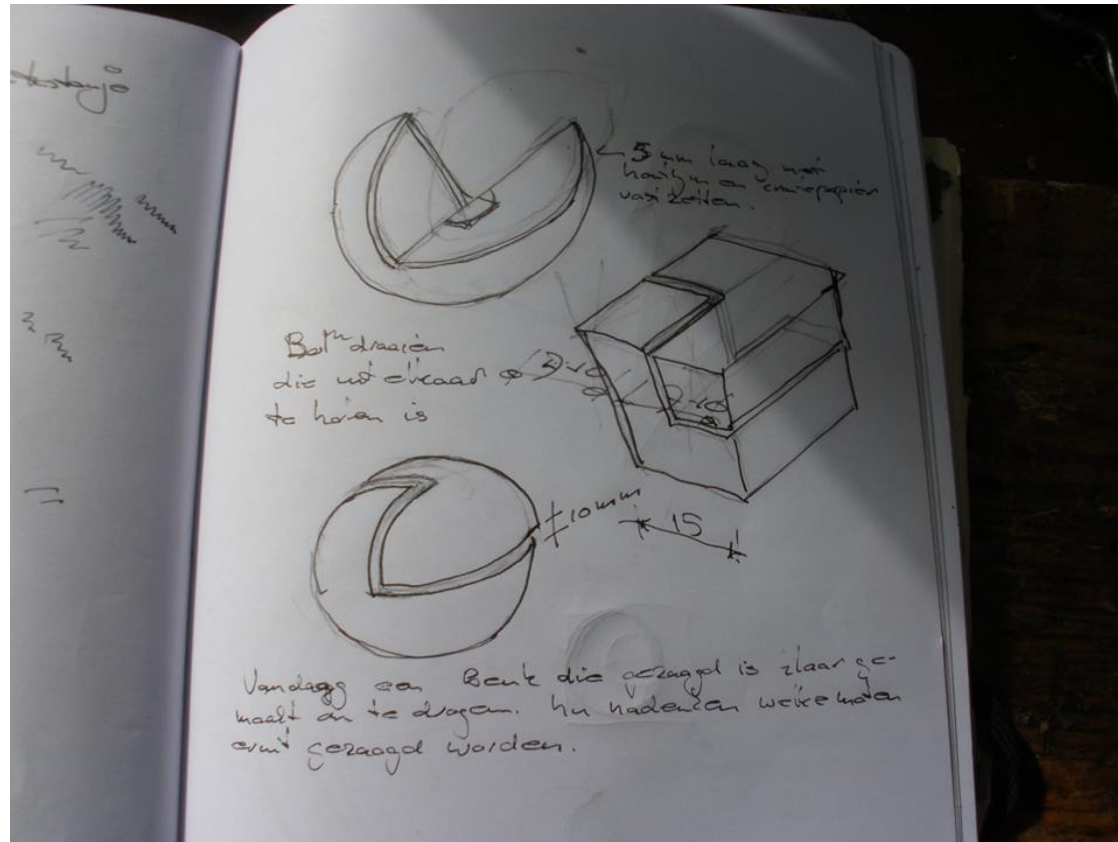 5 mm laag met
houtlym en
vast zetten.
draaien
die uit elkaar
te halen is
10 mm
15
Vandaag een Beuk die gezaagd is klaar ge-
maakt om te drogen. Nu nadenken welke maten
eruit gezaagd worden.